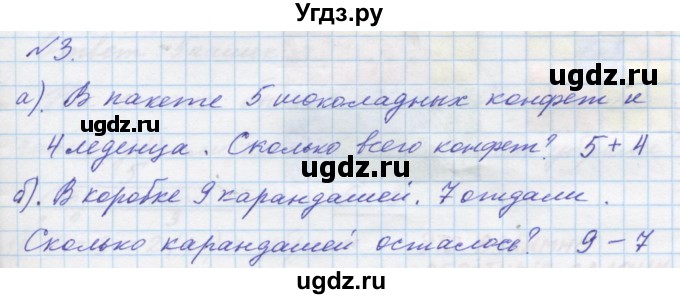 Угдз.ру
№3.
а). В пакете 5 шоколадных конфет и
4 леденца. Сколько всего конфет? 5 + 4
б). В коробке 9 карандашей. 7 отдали.
Сколько карандашей осталось? 9 - 7
ugdz.ru
ugdz.ru
ugdz.ru
ugdz.ru
ugdz.ru
ugdz.ru
ugdz.ru
ugdz.ru